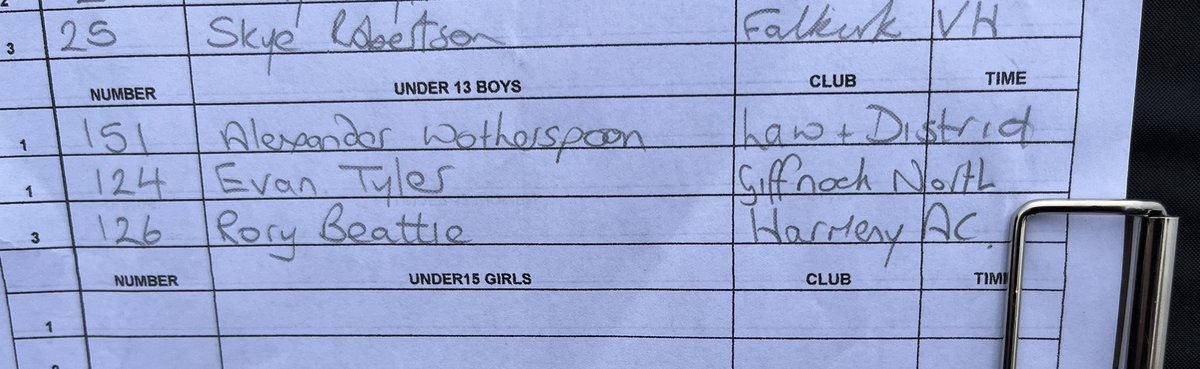 3 25 Skye Robertson Falkirk VH
NUMBER UNDER 13 BOYS CLUB TIME
1 151 Alexander Wotherspoon Law + District
1 124 Evan Tyler Giffnock North
3 126 Rory Beattie Harmeny AC.
NUMBER UNDER15 GIRLS CLUB TIM
1